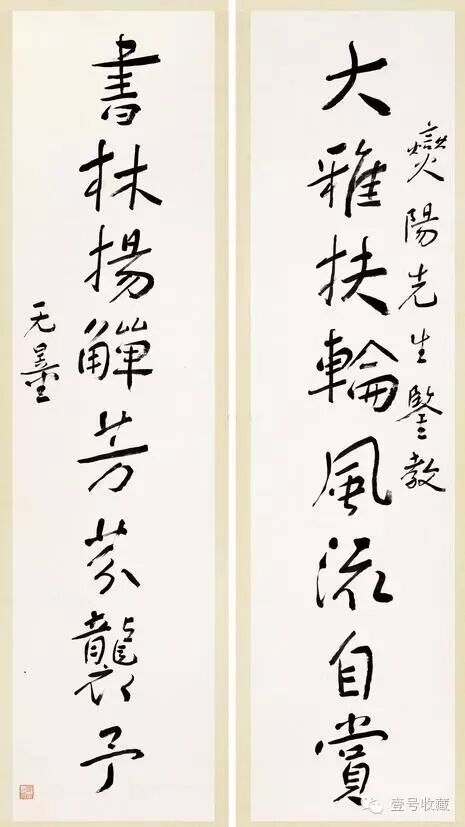 燮陽先生鑒教
大雅扶輪風流自賞
書林揚觶芳芬襲予
无量
壹号收藏